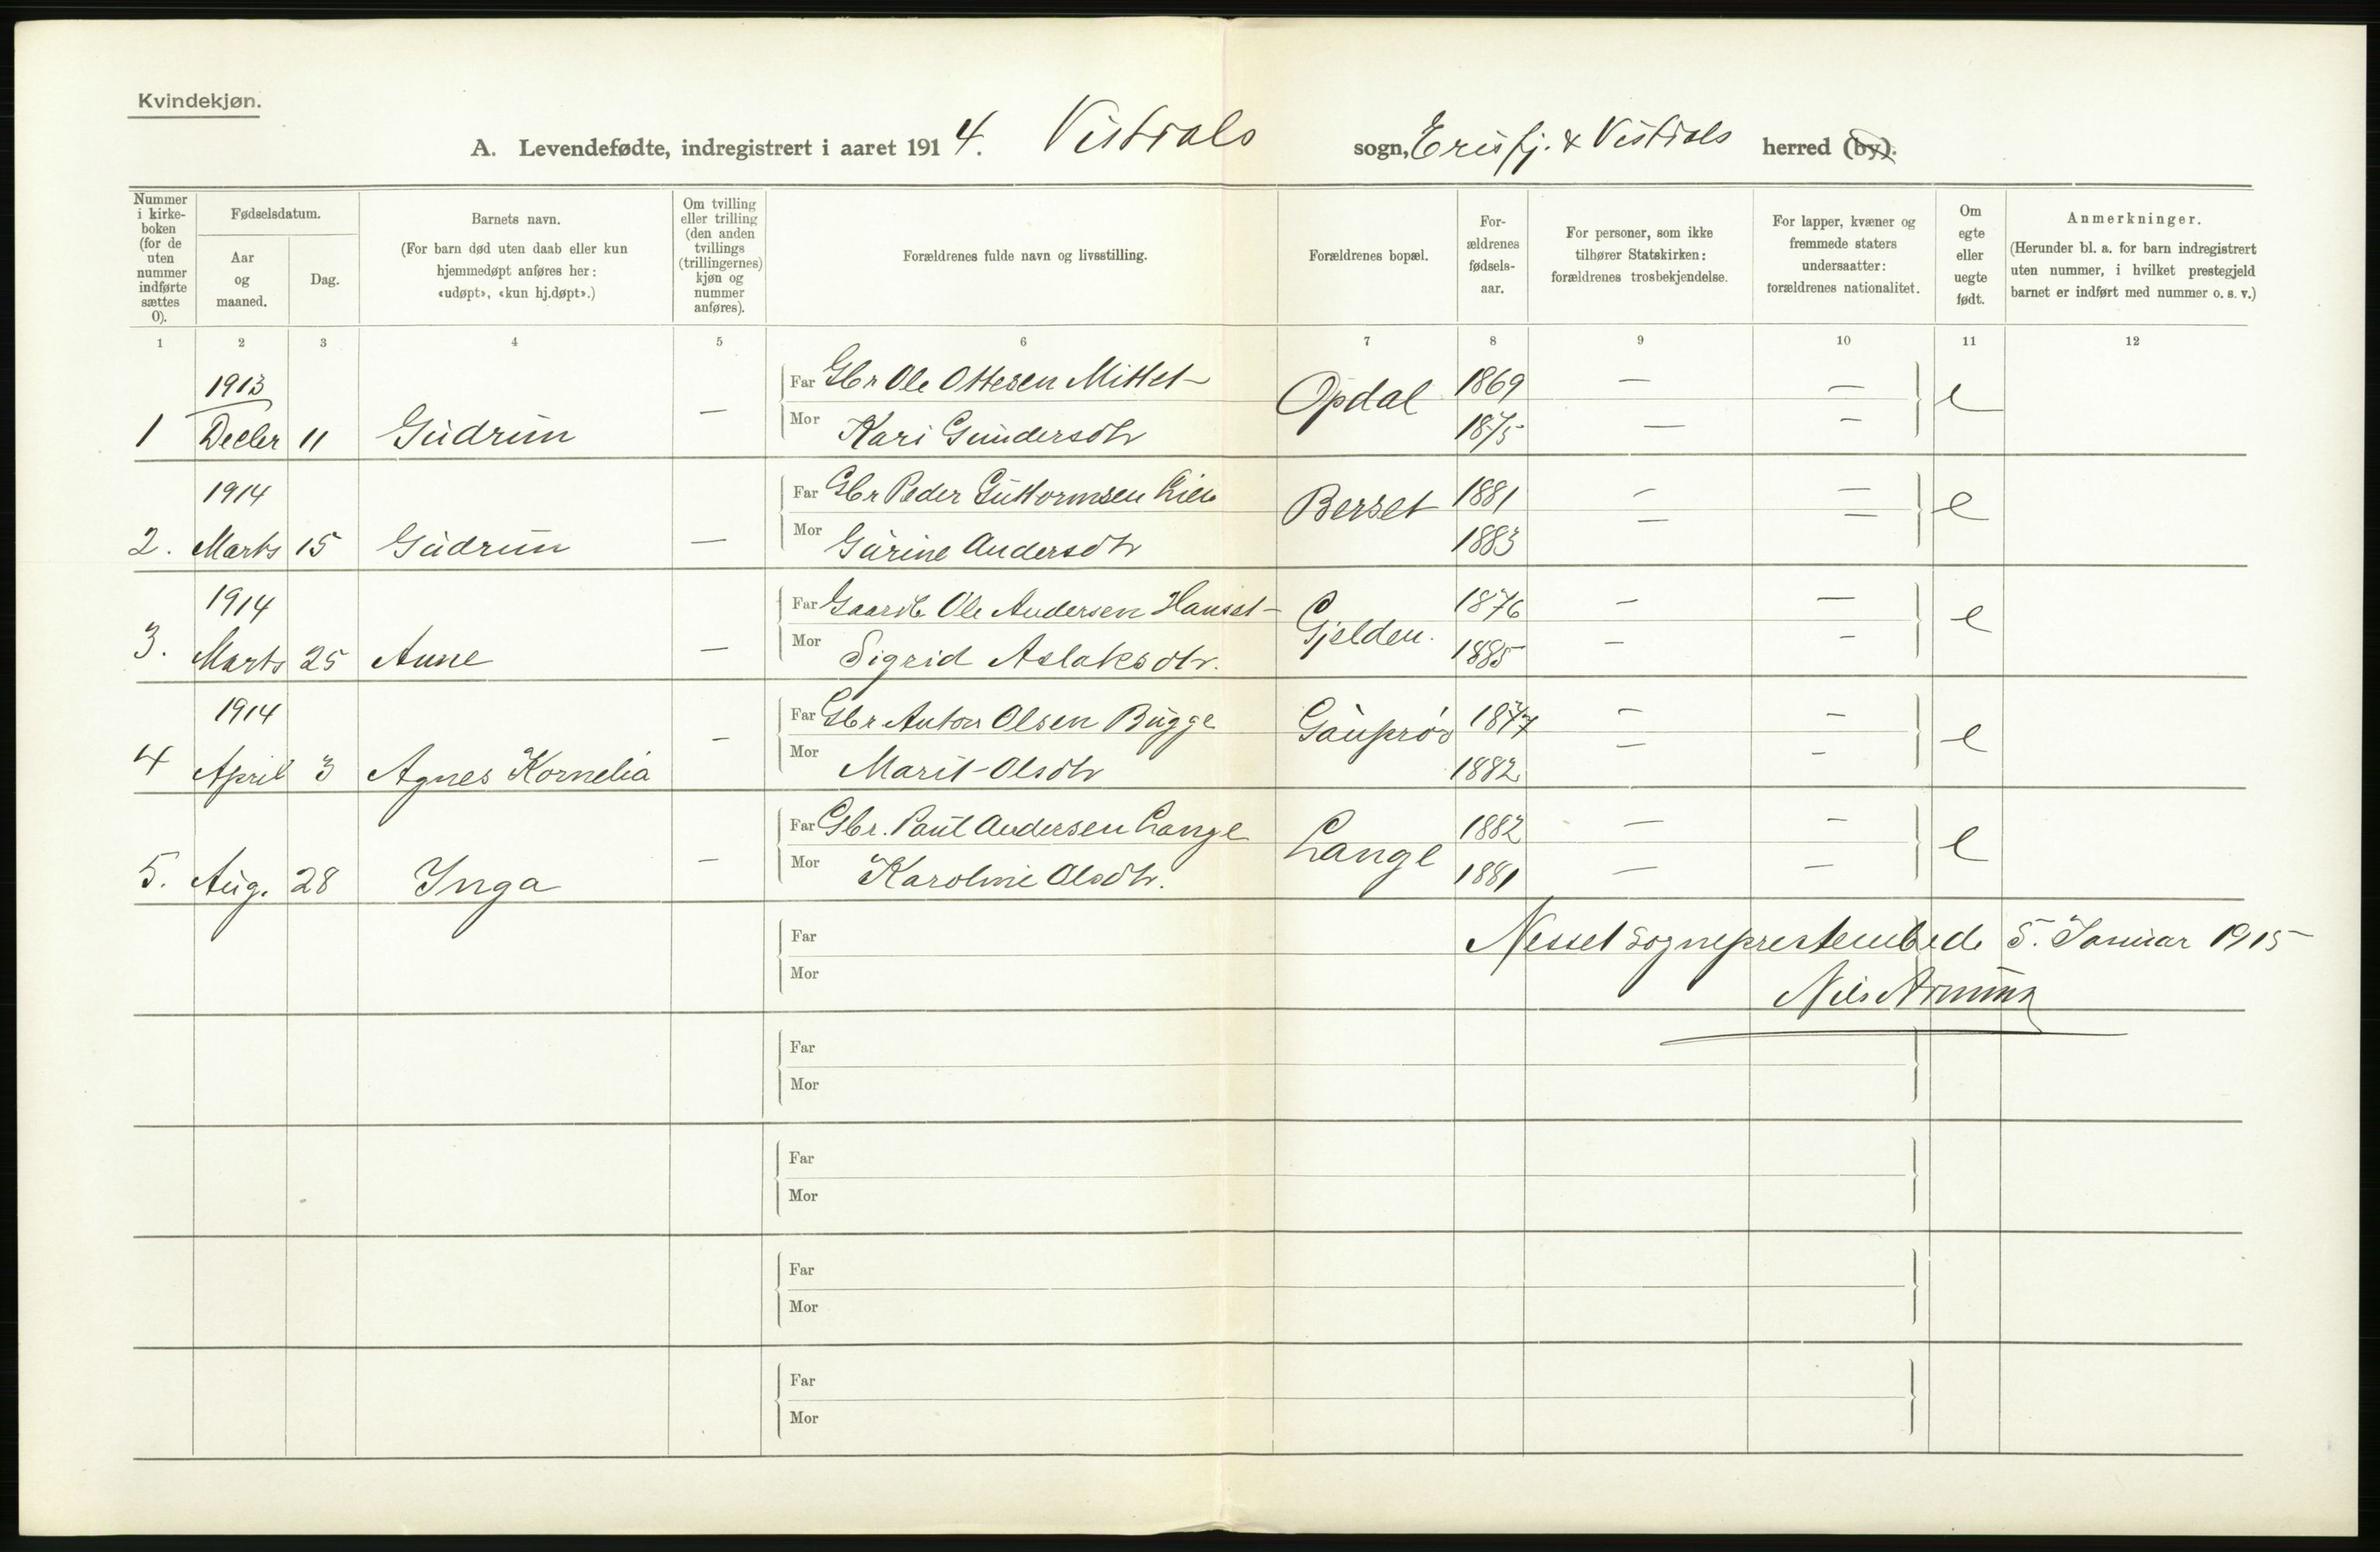 Kvindekjøn.
A. Levendefødte, indregistrert i aaret 1914. Vistdals sogn, Erisfj. & Vistdals herred (by).
Nummer i kirkeboken (for de uten nummer indførte sættes 0).
Fødselsdatum.
Aar og maaned.
Dag.
Barnets navn.
(For barn død uten daab eller kun hjemmedøpt anføres her: «udøpt», «kun hj.døpt».)
Om tvilling eller trilling (den anden tvillings (trillingernes) kjøn og nummer anføres).
Forældrenes fulde navn og livsstilling.
Forældrenes bopæl.
For-ældrenes fødsels-aar.
For personer, som ikke tilhører Statskirken: forældrenes trosbekjendelse.
For lapper, kvæner og fremmede staters undersaatter: forældrenes nationalitet.
Om egte eller uegte født.
Anmerkninger.
(Herunder bl. a. for barn indregistrert uten nummer, i hvilket prestegjeld barnet er indført med nummer o. s. v.)
1 2 3 4 5 6 7 8 9 10 11 12
1913 Far Gbr Ole Ottesen Mittet Opdal 1869 — — e
1 Decbr 11 Gudrun — Mor Kari Gundersdtr 1875 — —
1914 Far Gbr Peder Guttormsen Lien Berset 1881 — — e
2. Marts 15 Gudrun — Mor Gurine Andersdtr 1883 — —
1914 Far Gaardb Ole Andersen Hauset Gjelden. 1876 — — e
3. Marts 25 Anne — Mor Sigrid Aslaksdtr. 1885 — —
1914 Far Gbr Anton Olsen Bugge Gauprør 1877 — — e
4 April 3 Agnes Kornelia — Mor Marit Olsdtr 1882 — —
Far Gbr. Paul Andersen Lange Lange 1882 — — e
5. Aug. 28 Inga — Mor Karoline Olsdtr. 1881 — —
Far Nesset sogneprestembede 5. Januar 1915
Mor Nils
Far
Mor
Far
Mor
Far
Mor
Far
Mor